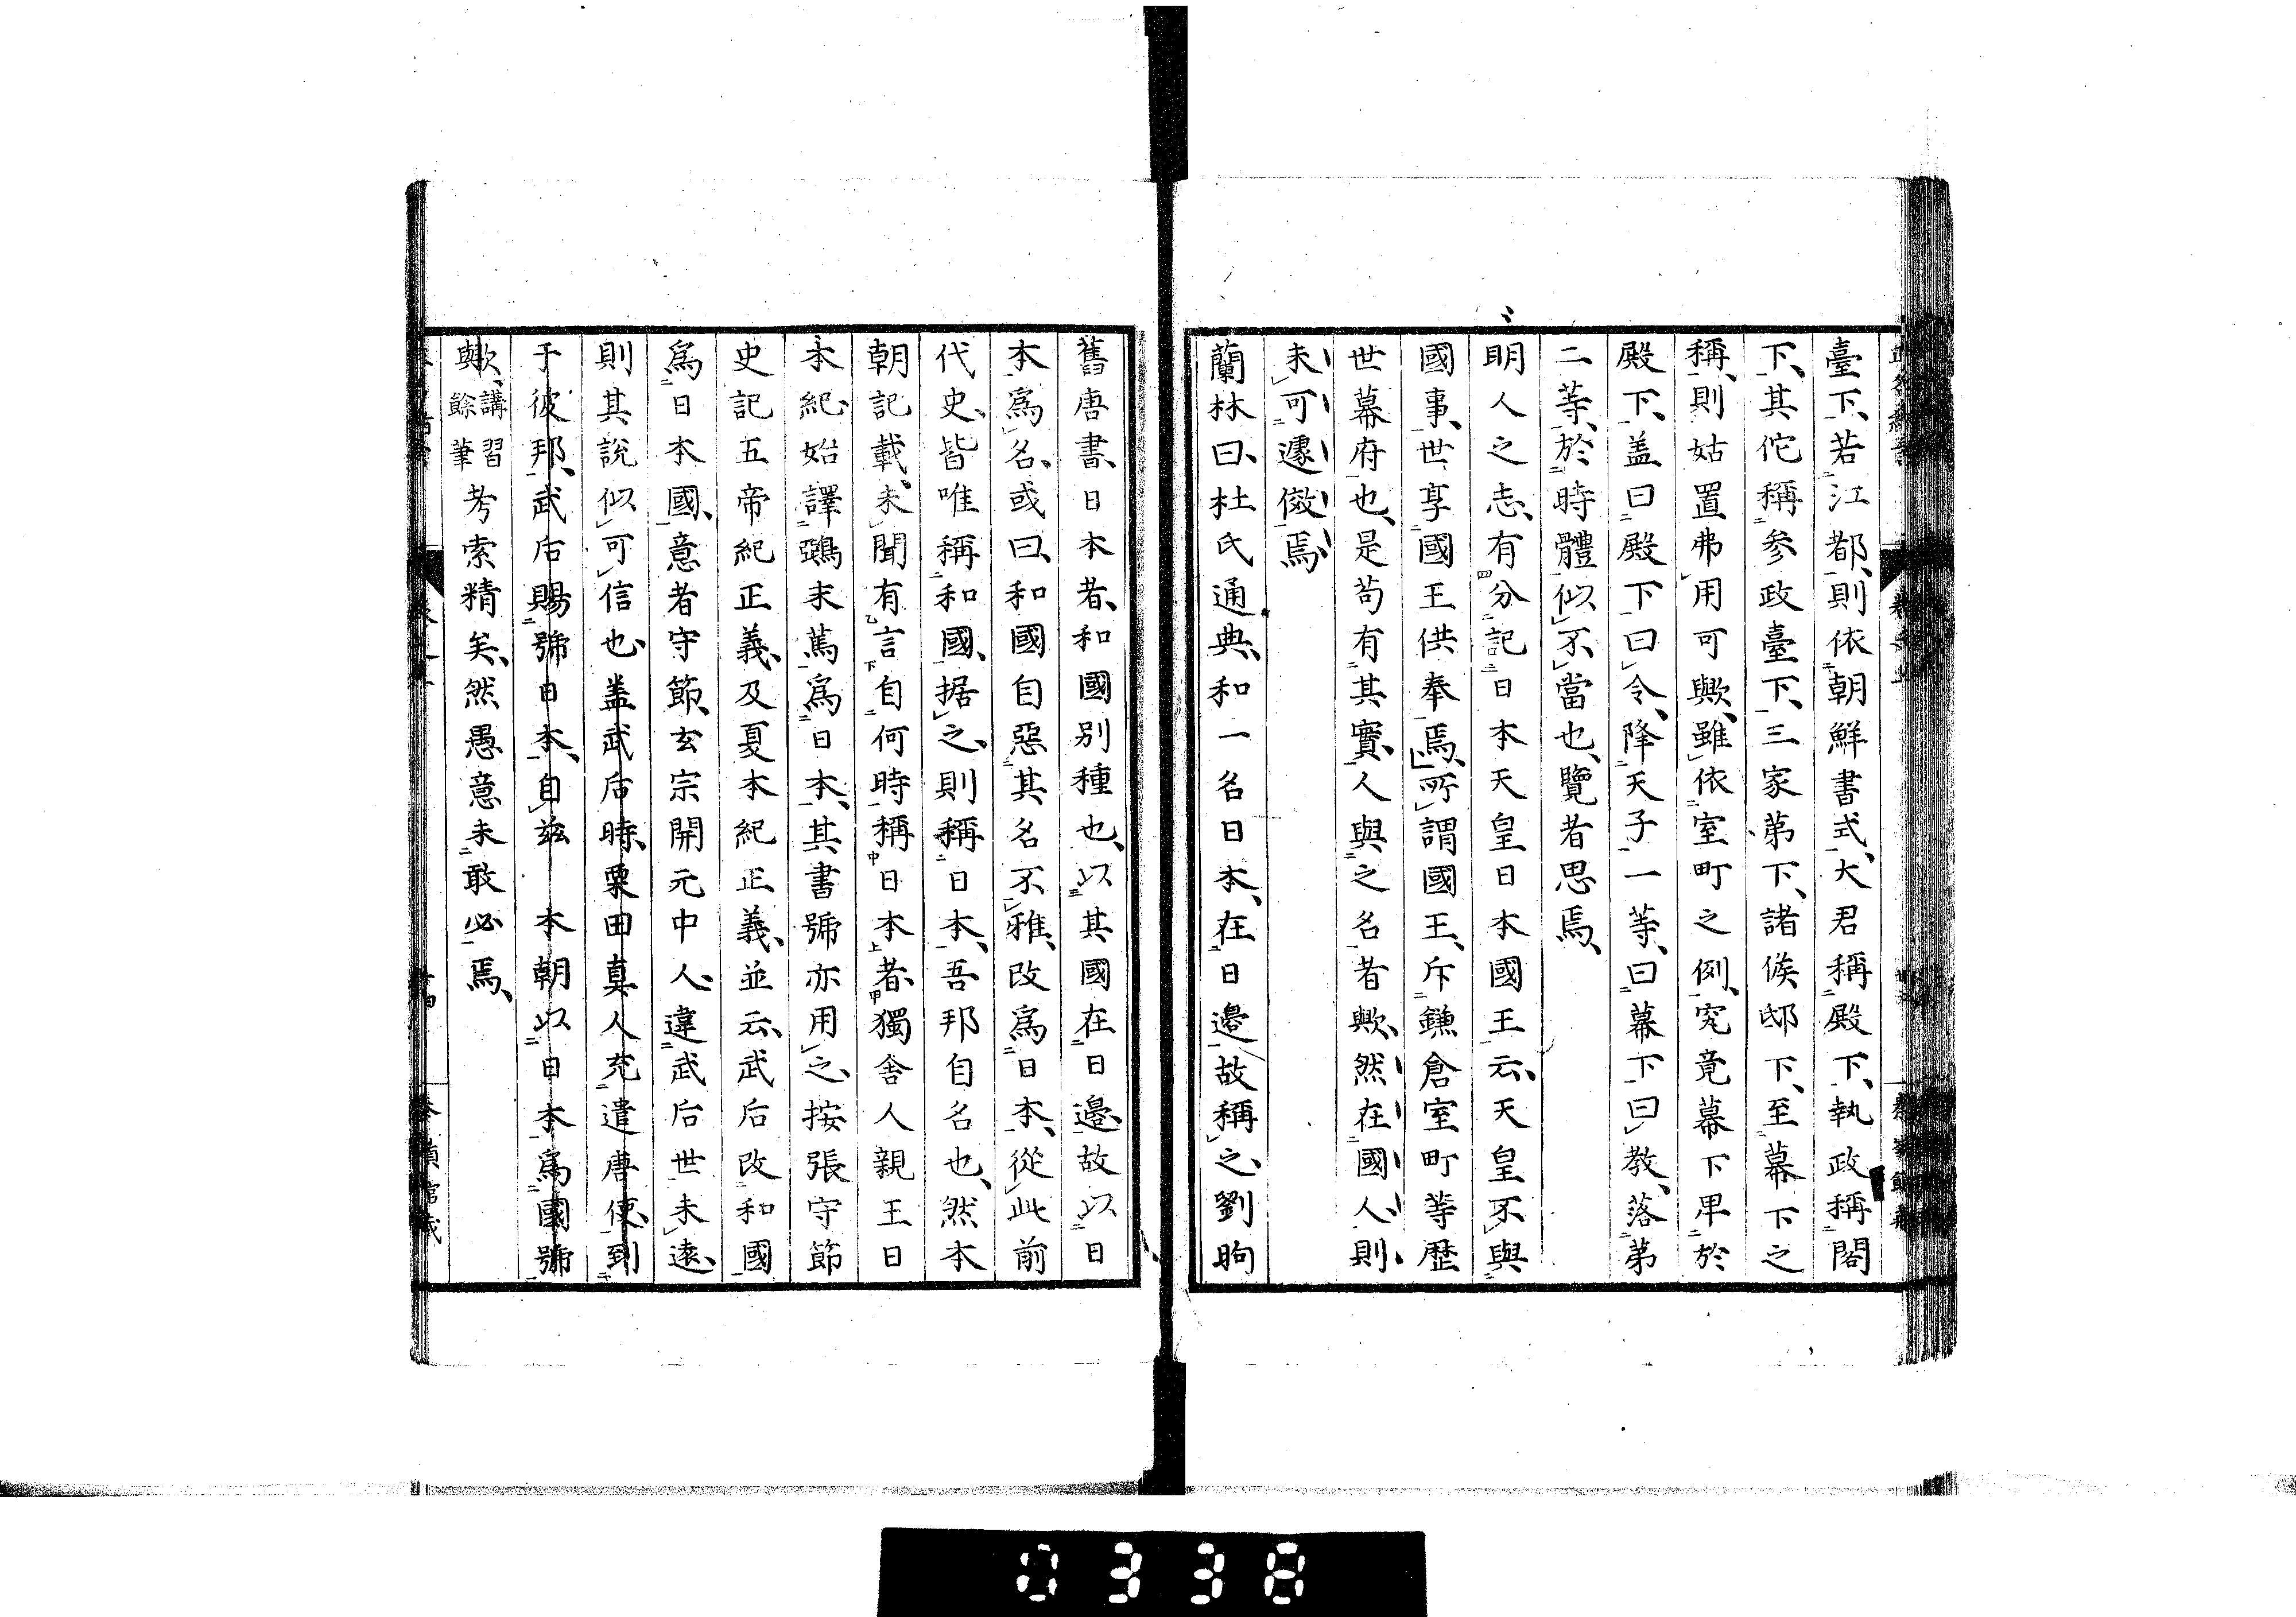 臺下、若江都、則依朝鮮書式、大君稱殿下、執政稱閣
下、其佗稱參政臺下、三家第下、諸侯邸下、至幕下之
稱、則姑置弗用可歟、雖依室町之例、究竟幕下卑於
殿下、盖曰殿下曰令、降天子一等、曰幕下曰教、落第
二等、於時體似不當也、覽者思焉、
明人之志、有分記日本天皇日本國王云、天皇不與
國事、世享國王供奉焉、所謂國王、斥鎌倉室町等歷
世幕府也、是苟有其實、人與之名者歟、然在國人、則
未可遽傚焉
蘭林曰、杜氏通典、和一名日本、在日邉故稱之、劉昫
舊唐書、日本者、和國別種也、以其國在日邉、故以日
本爲名、或曰、和國自惡其名不雅、改爲日本、從此前
代史、皆唯稱和國、据之、則稱日本、吾邦自名也、然本
朝記載、未聞有言自何時稱日本者、獨舍人親王日
本紀、始譯鵶末蔦爲日本、其書號亦用之、按張守節
史記五帝紀正義、及夏本紀正義、並云、武后改和國
爲日本國、意者守節、玄宗開元中人、違武后世未遠、
則其說似可信也、盖武后時、粟田真人充遣唐使、到
于彼邦、武后賜號日本、自玆　本朝以日本爲國號
歟、講習餘筆考索精矣、然愚意未敢必焉、
0338